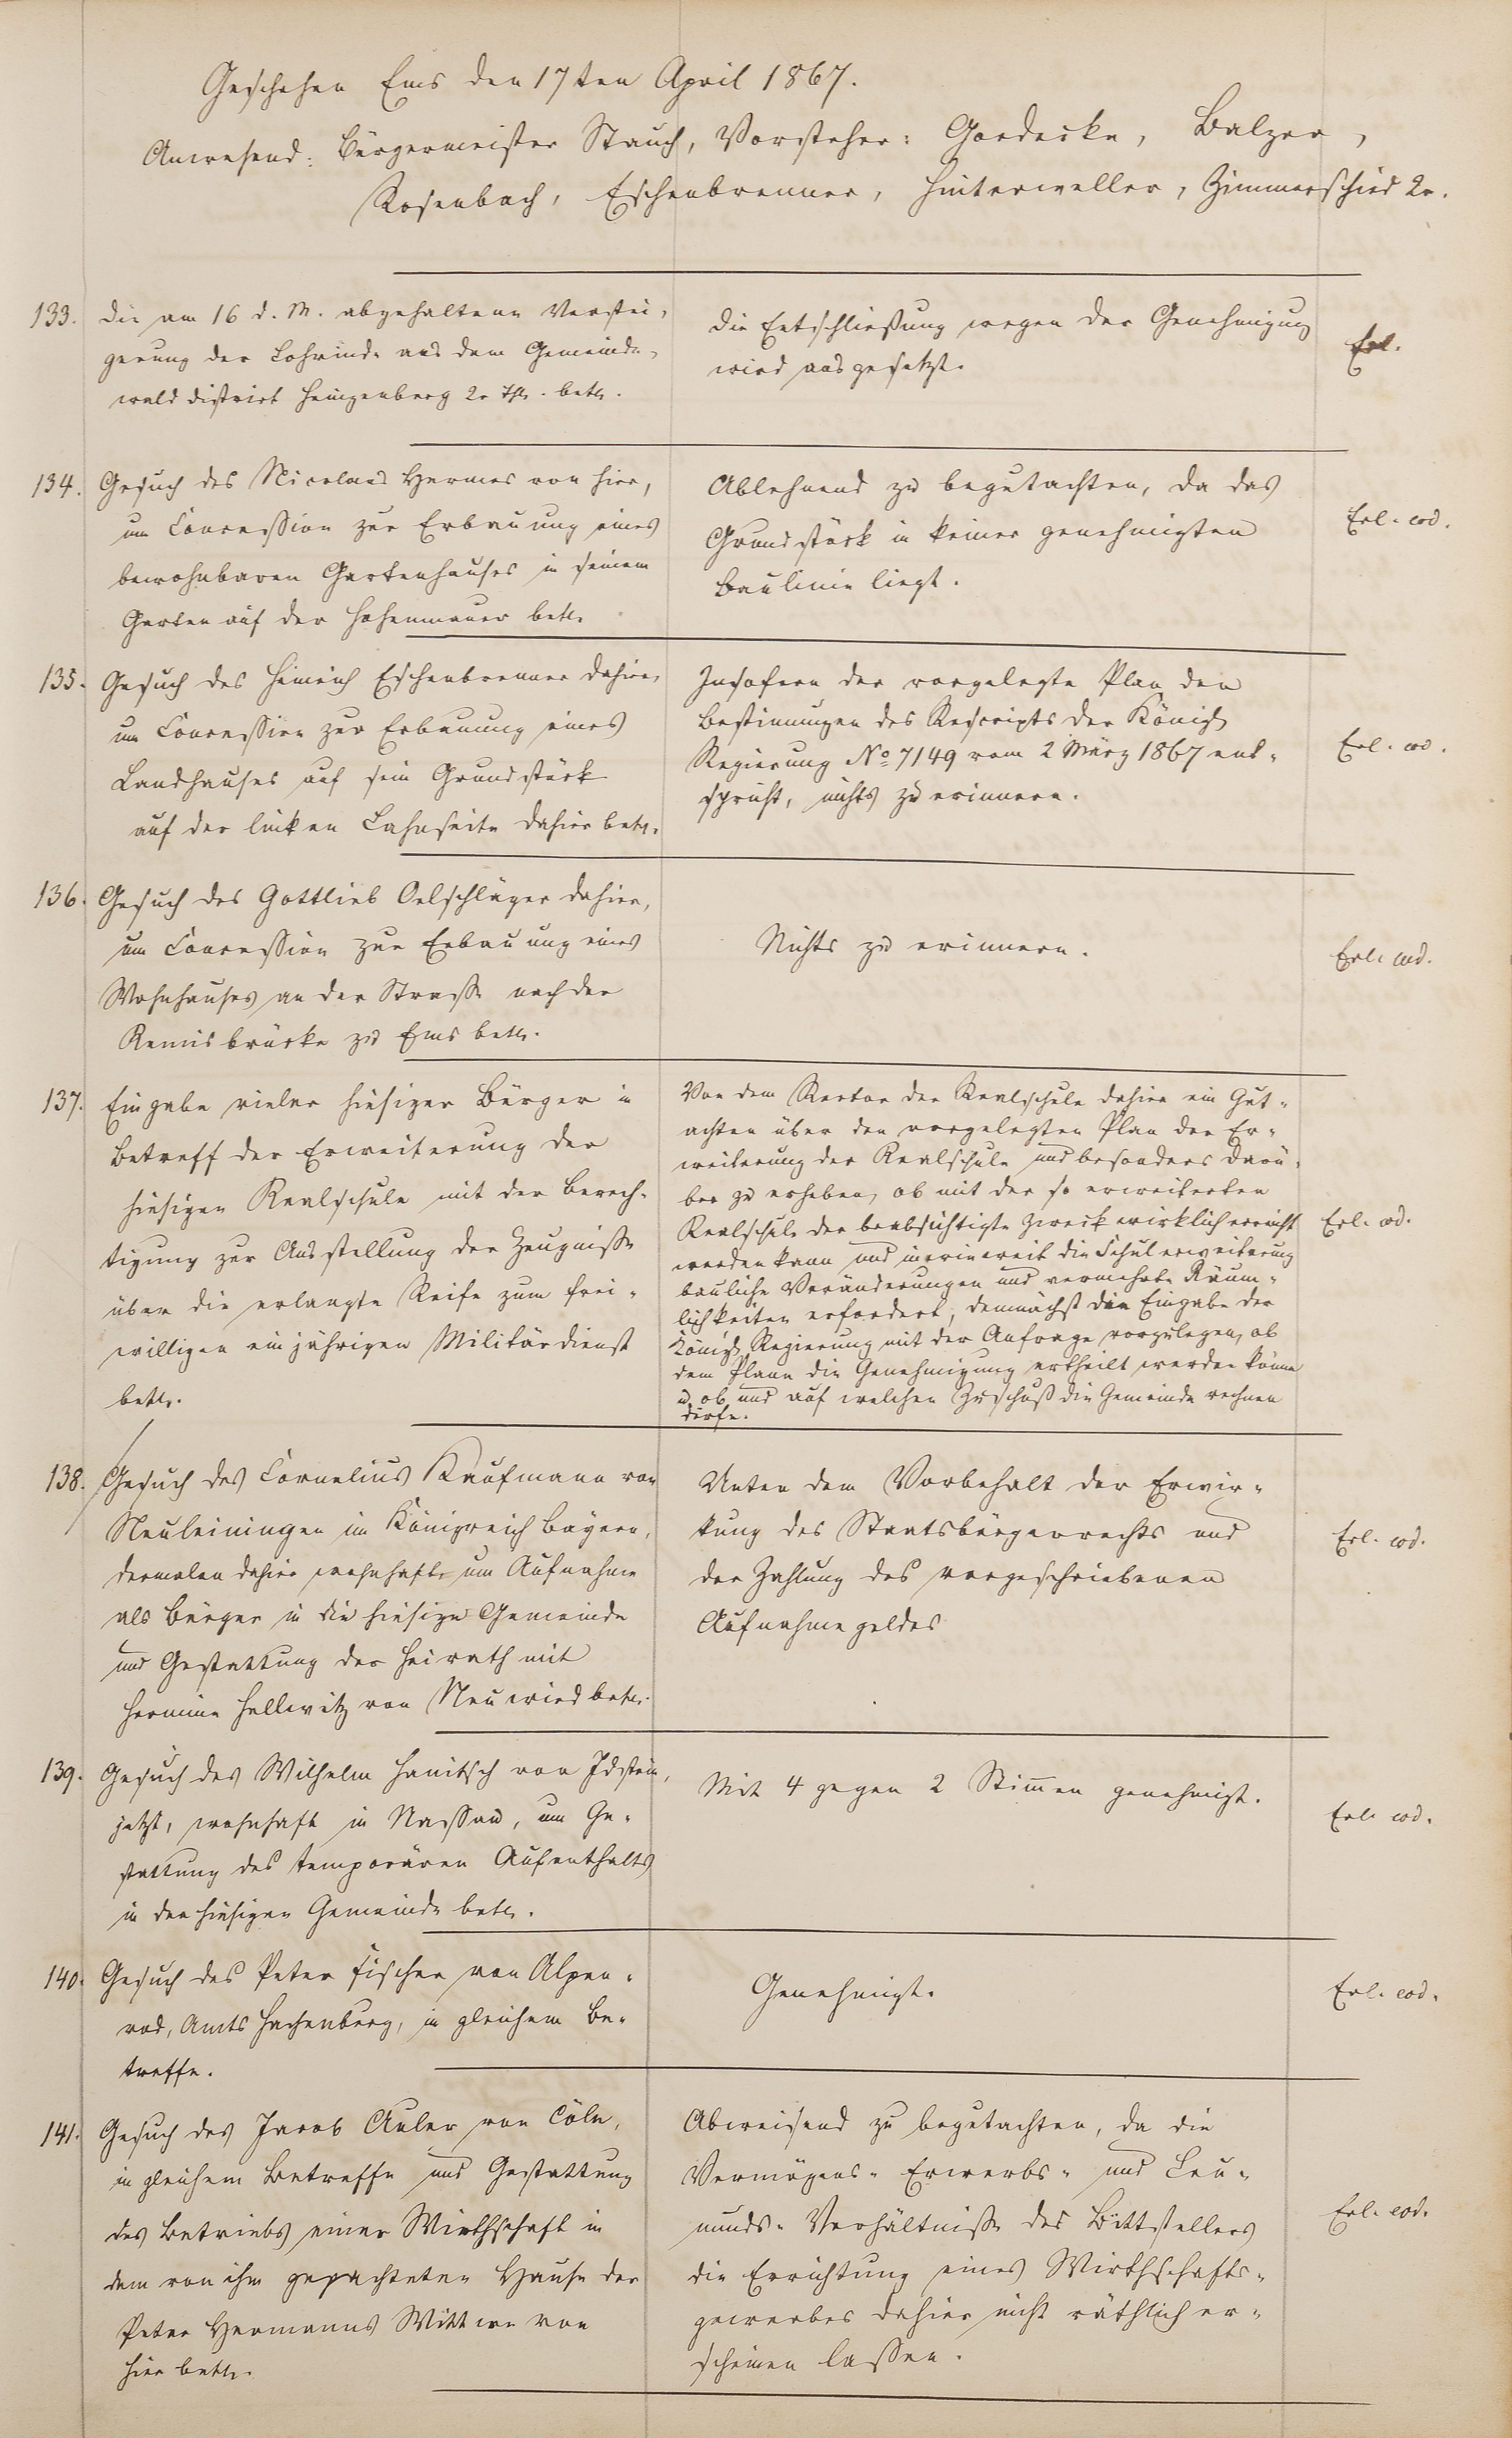 Geschehen Ems den 17ten April 1867.
Anwesend: Bürgermeister Stauch, Vorsteher: Goedecke, Balzer,
Rosenbach, Eschenbrenner, Hinterweller, Zimmerschied 2r.
133. die am 16 d. M. abgehaltene Verstei-
gerung der Lohrinde aus dem Gemeinde-
wald district Heingenberg 2r Th. betr.
die Entschließung wegen der Genehmigung
wird ausgesetzt.
Erl.
134. Gesuch des Nicolaus Hermes von hier,
um Concession zur Erbauung eines
bewohnbaren Gartenhauses in seinem
Garten auf der Hohenmauer betr.
Ablehnend zu begutachten, da das
Grundstück in keiner genehmigten
Baulinie liegt.
Erl. eod.
135. Gesuch des Heinrich Eschenbrenner dahier,
um Concession zur Erbauung eines
Landhauses auf sein Grundstück
auf der linken Lahnseite dahier betr.
Insofern der vorgelegte Plan den
Bestimmungen des Rescripts der Königl.
Regierung No 7149 vom 2 März 1867 ent-
spricht, nichts zu erinnern.
Erl. eod.
136. Gesuch des Gottlieb Oelschläger dahier,
um Concession zur Erbauung eines
Wohnhauses an der Straße nach der
Remisbrücke zu Ems betr.
Nichts zu erinnern.
Erl. eod.
137. Eingabe vieler hiesiger Bürger in
Betreff der Erweiterung der
hiesigen Realschule mit der Berech-
tigung zur Ausstellung der Zeugnisse
über die erlangte Reife zum frei-
willigen einjährigen Militärdienst
betr.
Von dem Rector der Realschule dahier ein Gut-
achten über den vorgelegten Plan der Er-
weiterung der Realschule und besonders darü-
ber zu erheben, ob mit der so erweiterten
Realschule der beabsichtigte Zweck wirklich erreicht
werden kann und inwieweit die Schulerweiterung
bauliche Veränderungen und vermehrte Räum-
lichkeiten erfordert, demnächst die Eingabe der
Königl. Regierung mit der Anfrage vorzulegen, ob
dem Plane die Genehmigung ertheilt werden könne
u. ob und auf welchen Zuschuß die Gemeinde rechnen
dürfe.
Erl. eod.
138. Gesuch des Cornelius Kaufmann von
Neuleiningen im Königreich Bayern,
dermalen dahier wohnhaft, um Aufnahme
als Bürger in die hiesige Gemeinde
und Gestattung der Heirath mit
Hermine Hellwitz von Neuwied betr.
Unter dem Vorbehalt der Erwir-
kung des Staatsbürgerrechts und
der Zahlung des vorgeschriebenen
Aufnahmegeldes
Erl. eod.
139. Gesuch des Wilhelm Hanitsch von Idstein,
jetzt, wohnhaft in Nassau, um Ge-
stattung des temporären Aufenthalts
in der hiesigen Gemeinde betr.
Mit 4 gegen 2 Stimmen genehmigt.
Erl. eod.
140. Gesuch des Peter Fischer von Alpen-
rod, Amts Hachenburg, in gleichem Be-
treffe.
Genehmigt.
Erl. eod.
141. Gesuch des Jacob Auler von Cöln,
in gleichem Betreffe und Gestattung
des Betriebs einer Wirthschaft in
dem von ihm gepachteten Hause der
Peter Hermanns Wittwe von
hier betr.
Abweisend zu begutachten, da die
Vermögens- Erwerbs- und Leu-
munds- Verhältnisse des Bittstellers
die Errichtung eines Wirthschafts-
gewerbes dahier nicht räthlich er-
scheinen lassen.
Erl. eod.